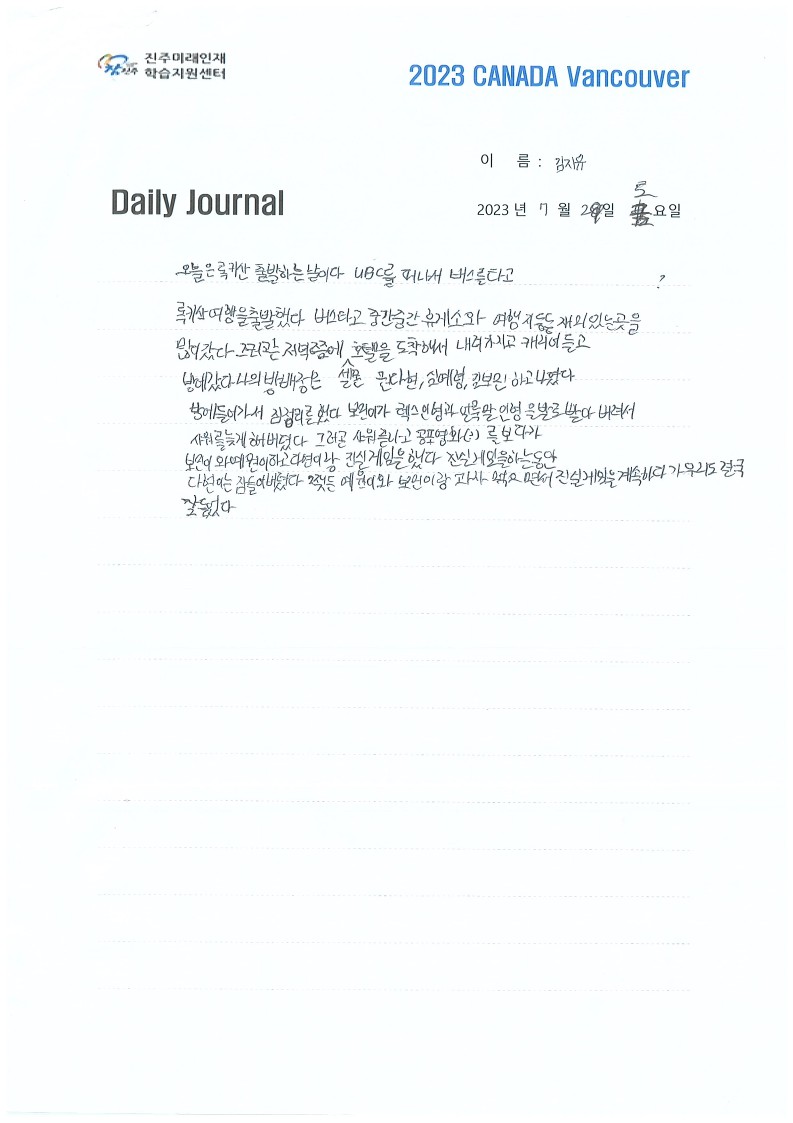 진주미래인재
학습지원센터
2023 CANADA Vancouver
이 름 : 김지유
Daily Journal
2023 년 7 월 29일 토요일
오늘은 록키산 출발하는날이다 UBC를 떠나서 버스를타고
?
록키산여행을출발했다 버스타고 중간중간 휴게소와 여행지등등 재외있는곳을
많이갔다 그리곤 저녁8쯤에 호텔을 도착해서 내려가지고 캐리어들고
방에갔다 나의 방배정은 셀폰 문다현, 심예형, 김보민 하고나왔다
방에들어가서 짐정리를했다 보민이가 렉스인형과 얼룩말 인형 을발로 밟아 버려서
샤워를늦게 해버렸다 그러곤 샤워를하고 공포영화(?) 를보다가
보민이 와예원이하고다현이랑 진실게임을했다 진실게임을하는동안
다현이는 잠들어버렸다 어쨋든 예원이와 보민이랑 과자 먹으면서 진실게임을계속하다가 우리도 결국
잠들었다